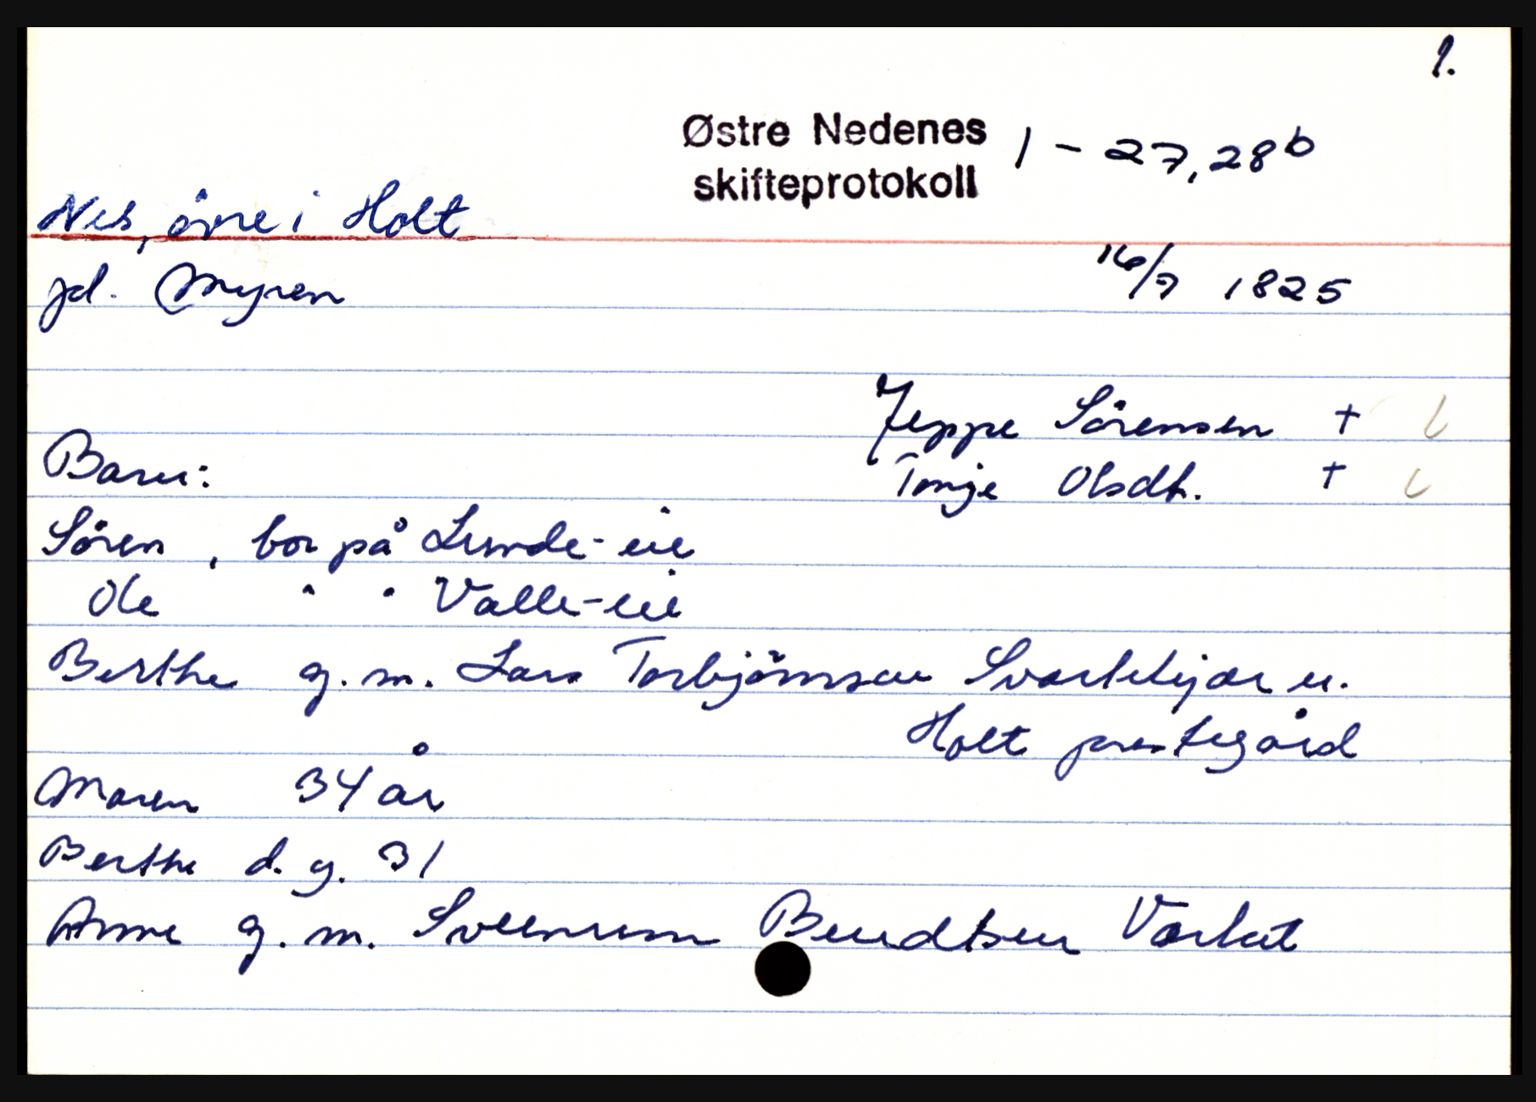 1.
Østre Nedenes 1 - 27,28b
skifteprotokoll
Nes, övre i Holt
pl. Myren 16/7 1825
Jeppe Sörensen +
Barn: Tonje Olsdt. +
Sören, bor på Lunde-eie
Ole " " Valle-eie
Berthe g. m. Lars Torbjörnsen Svartekjær u.
Holt prestegård
Maren 34 år
Berthe d. y. 31
Anne g. m. Svennum Bendtsen